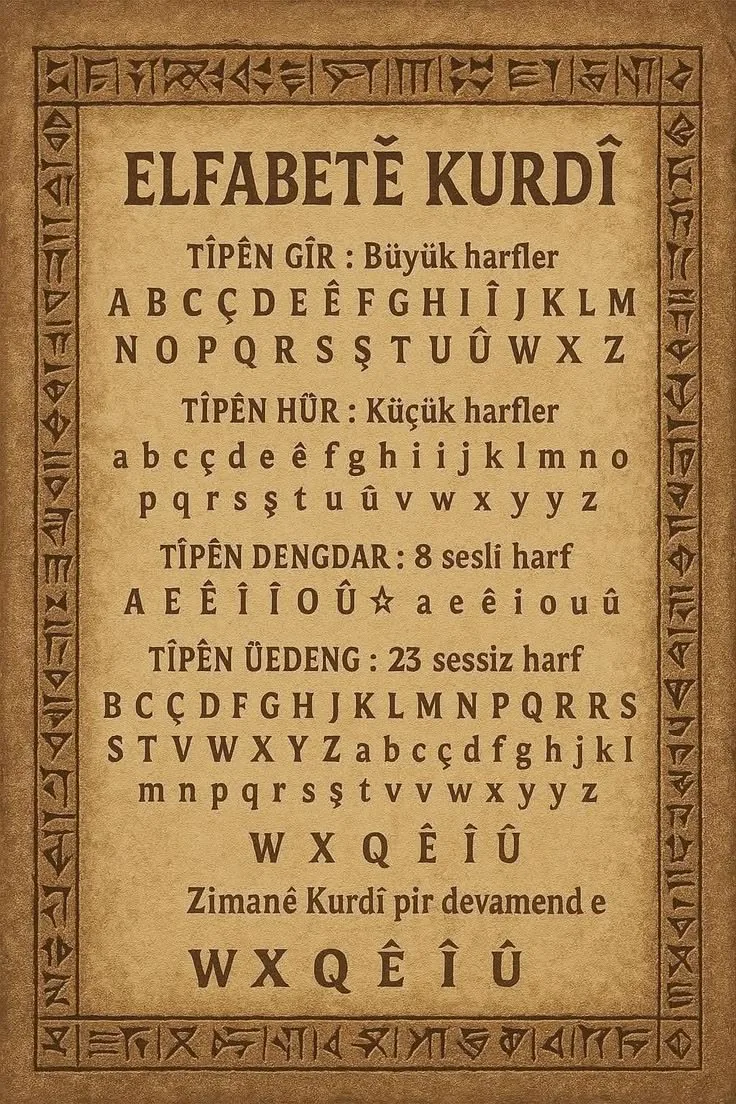 ELFABETĚ KURDÎ
TÎPÊN GÎR : Büyük harfler
A B C Ç D E Ê F G H I Î J K L M
N O P Q R S Ş T U Û W X Z
TÎPÊN HÜR : Küçük harfler
a b c ç d e ê f g h i i j k l m n o
p q r s ş t u û v w x y y z
TÎPÊN DENGDAR : 8 sesli harf
A E Ê Î Î O Û ☆ a e ê i o u û
TÎPÊN ÜEDENG : 23 sessiz harf
B C Ç D F G H J K L M N P Q R R S
S T V W X Y Z a b c ç d f g h j k l
m n p q r s ş t v v w x y y z
W X Q Ê Î Û
Zimanê Kurdî pir devamend e
W X Q Ê Î Û